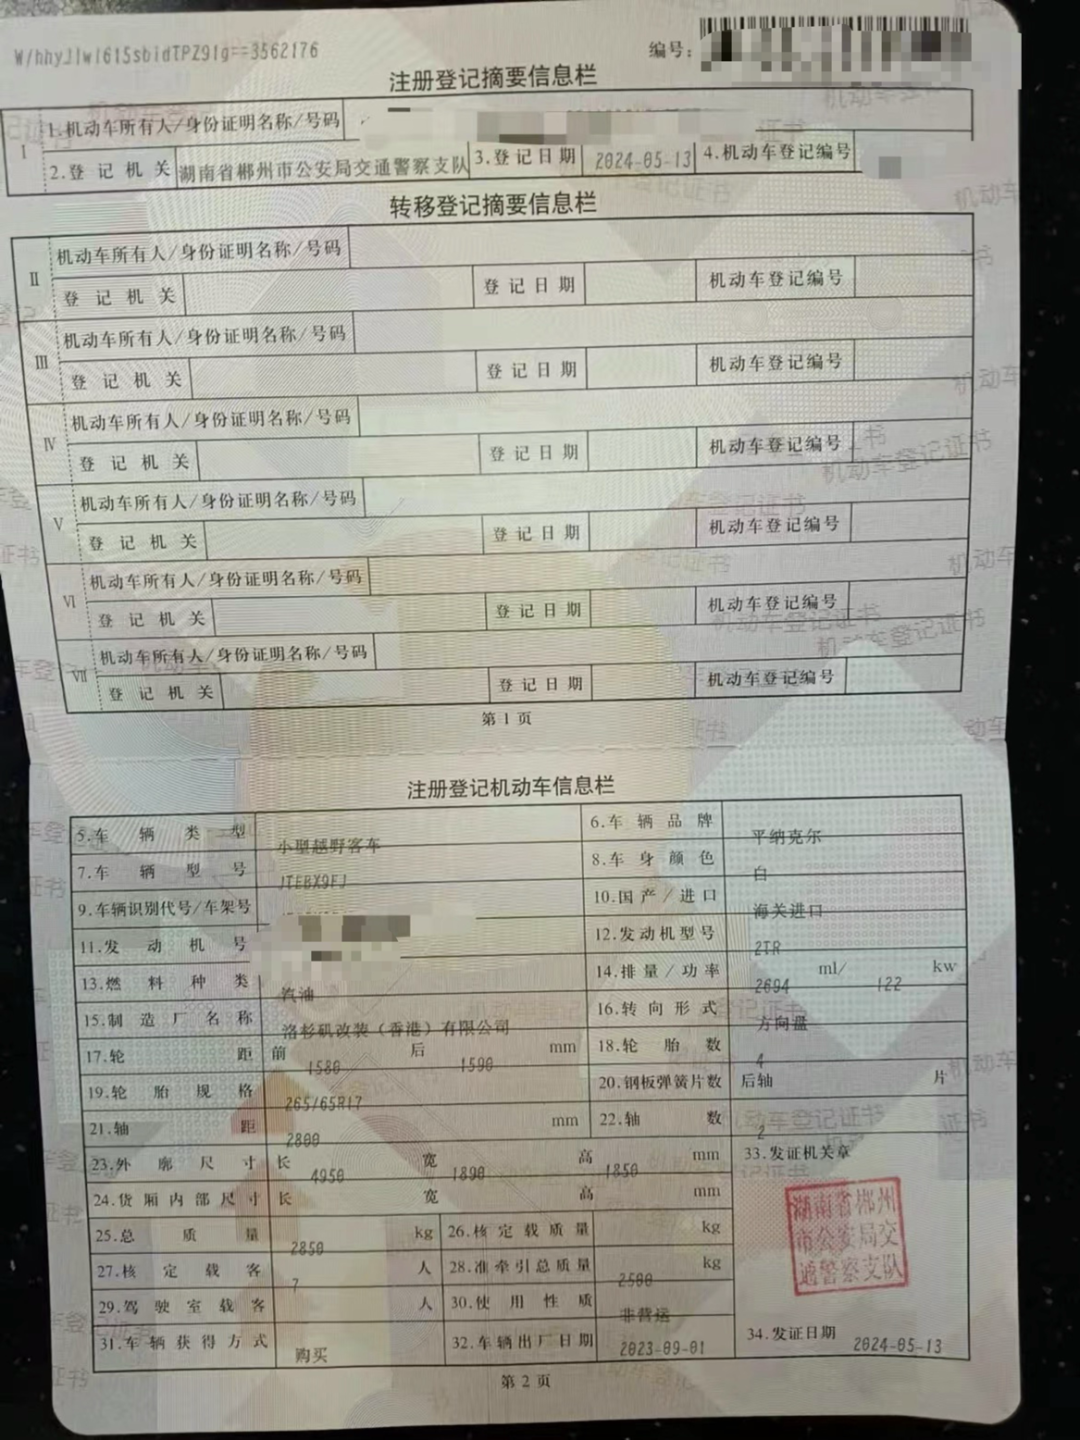 W/hhyJlwl615sbidTPZ91g==3562176
编号:
注册登记摘要信息栏
1
1.机动车所有人/身份证明名称/号码
2.登记机关 湖南省郴州市公安局交通警察支队 3.登记日期 2024-05-13 4.机动车登记编号
转移登记摘要信息栏
Ⅱ
机动车所有人/身份证明名称/号码
登记机关 登记日期 机动车登记编号
Ⅲ
机动车所有人/身份证明名称/号码
登记机关 登记日期 机动车登记编号
Ⅳ
机动车所有人/身份证明名称/号码
登记机关 登记日期 机动车登记编号
Ⅴ
机动车所有人/身份证明名称/号码
登记机关 登记日期 机动车登记编号
Ⅵ
机动车所有人/身份证明名称/号码
登记机关 登记日期 机动车登记编号
Ⅶ
机动车所有人/身份证明名称/号码
登记机关 登记日期 机动车登记编号
第1页
注册登记机动车信息栏
5.车辆类型 小型越野客车 6.车辆品牌 平纳克尔
7.车辆型号 JTEBX9FJ 8.车身颜色 白
9.车辆识别代号/车架号 10.国产/进口 海关进口
11.发动机号 12.发动机型号 2TR
13.燃料种类 汽油 14.排量/功率 2694 ml/ 122 kw
15.制造厂名称 洛杉矶改装（香港）有限公司 16.转向形式 方向盘
17.轮距 前 1580 后 1590 mm 18.轮胎数 4
19.轮胎规格 265/65R17 20.钢板弹簧片数 后轴 片
21.轴距 2800 mm 22.轴数 2
23.外廓尺寸 长 4950 宽 1890 高 1850 mm 33.发证机关章
24.货厢内部尺寸 长 宽 高 mm
湖南省郴州
市公安局交
通警察支队
25.总质量 2850 kg 26.核定载质量 kg
27.核定载客 7 人 28.准牵引总质量 2500 kg
29.驾驶室载客 人 30.使用性质 非营运
31.车辆获得方式 购买 32.车辆出厂日期 2023-09-01 34.发证日期 2024-05-13
第2页